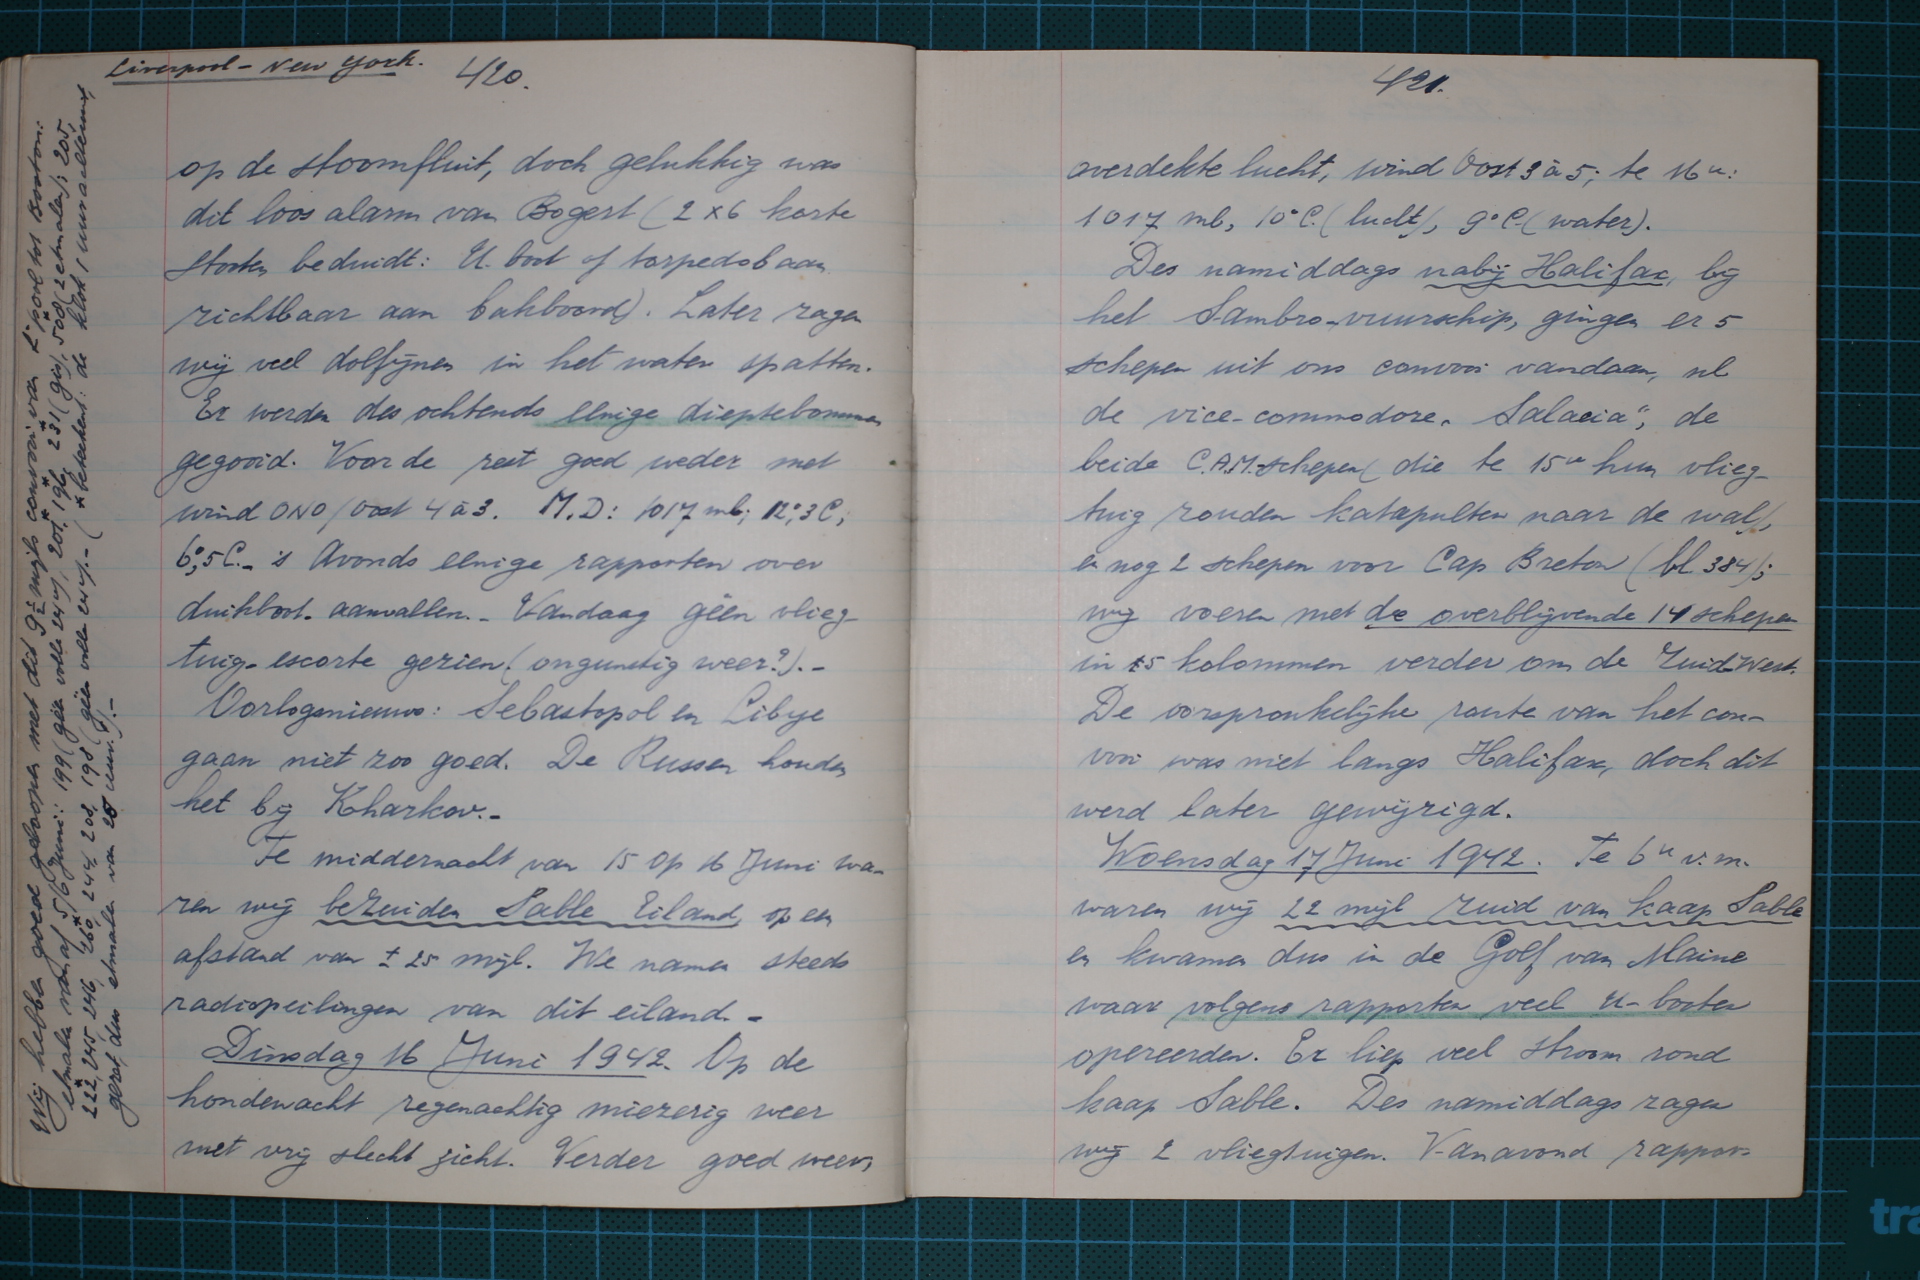 Liverpool - New York.
420.
op de stoomfluit, doch gelukkig was
dit loos alarm van Bogert (2 x 6 korte
stooten beduidt: U. boot of torpedobaan
zichtbaar aan bakboord). Later zagen
wij veel dolfijnen in het water spatten.
Er werden des ochtends eenige dieptebommen
gegooid. Voor de rest goed weder met
wind ONO/Oost 4 à 3. M.D: 1017 mb; 12°,3 C;
6°,5 C. - 's Avonds eenige rapporten over
duikboot-aanvallen. - Vandaag géén vlieg-
tuig-escorte gezien (ongunstig weer?). -
Oorlogsnieuws: Sebastopol en Libye
gaan niet zoo goed. De Russen houden
het bij Kharkov. -
Te middernacht van 15 op 16 Juni wa-
ren wij bezuiden Sable Eiland, op een
afstand van ± 25 mijl. We namen steeds
radiopeilingen van dit eiland. -
Dinsdag 16 Juni 1942. Op de
hondewacht regenachtig miezerig weer
met vrij slecht zicht. Verder goed weer,
Wij hebben goede geloopen met dit 9½ mijls convooi van L'pool tot Boston:
etmalen vanaf 5/6 Juni: 199 (géén volle 24 u), 201, 196, 231 (gis), 508 (2 etmalen); 205,
222, 245, 246, 260, 244, 208, 198 (géén volle 24 u). - (* beteekent: de klok 1 uur achteruit
gezet, dus etmalen van 25 uur.). -
421.
overdekte lucht, wind Oost 3 à 5; te 16 u:
1017 mb, 10° C. (lucht), 9° C. (water).
Des namiddags nabij Halifax, bij
het Sambro-vuurschip, gingen er 5
schepen uit ons convooi vandaan, nl
de vice-commodore „Salacia“, de
beide C.A.M.-schepen (die te 15 u hun vlieg-
tuig zouden katapulten naar de wal),
en nog 2 schepen voor Cap Breton (bl. 384);
wij voeren met de overblijvende 14 schepen
in 5 kolommen verder om de Zuid-West.
De oorspronkelijke route van het con-
vooi was niet langs Halifax, doch dit
werd later gewijzigd.
Woensdag 17 Juni 1942. Te 6 u v.m.
waren wij 22 mijl zuid van kaap Sable
en kwamen dus in de Golf van Maine
waar volgens rapporten veel U-booten
opereerden. Er liep veel stroom rond
kaap Sable. Des namiddags zagen
wij 2 vliegtuigen. Vanavond rappor-
tra